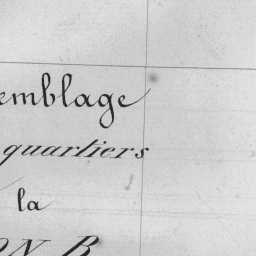 emblage
quartiers
la
ON B